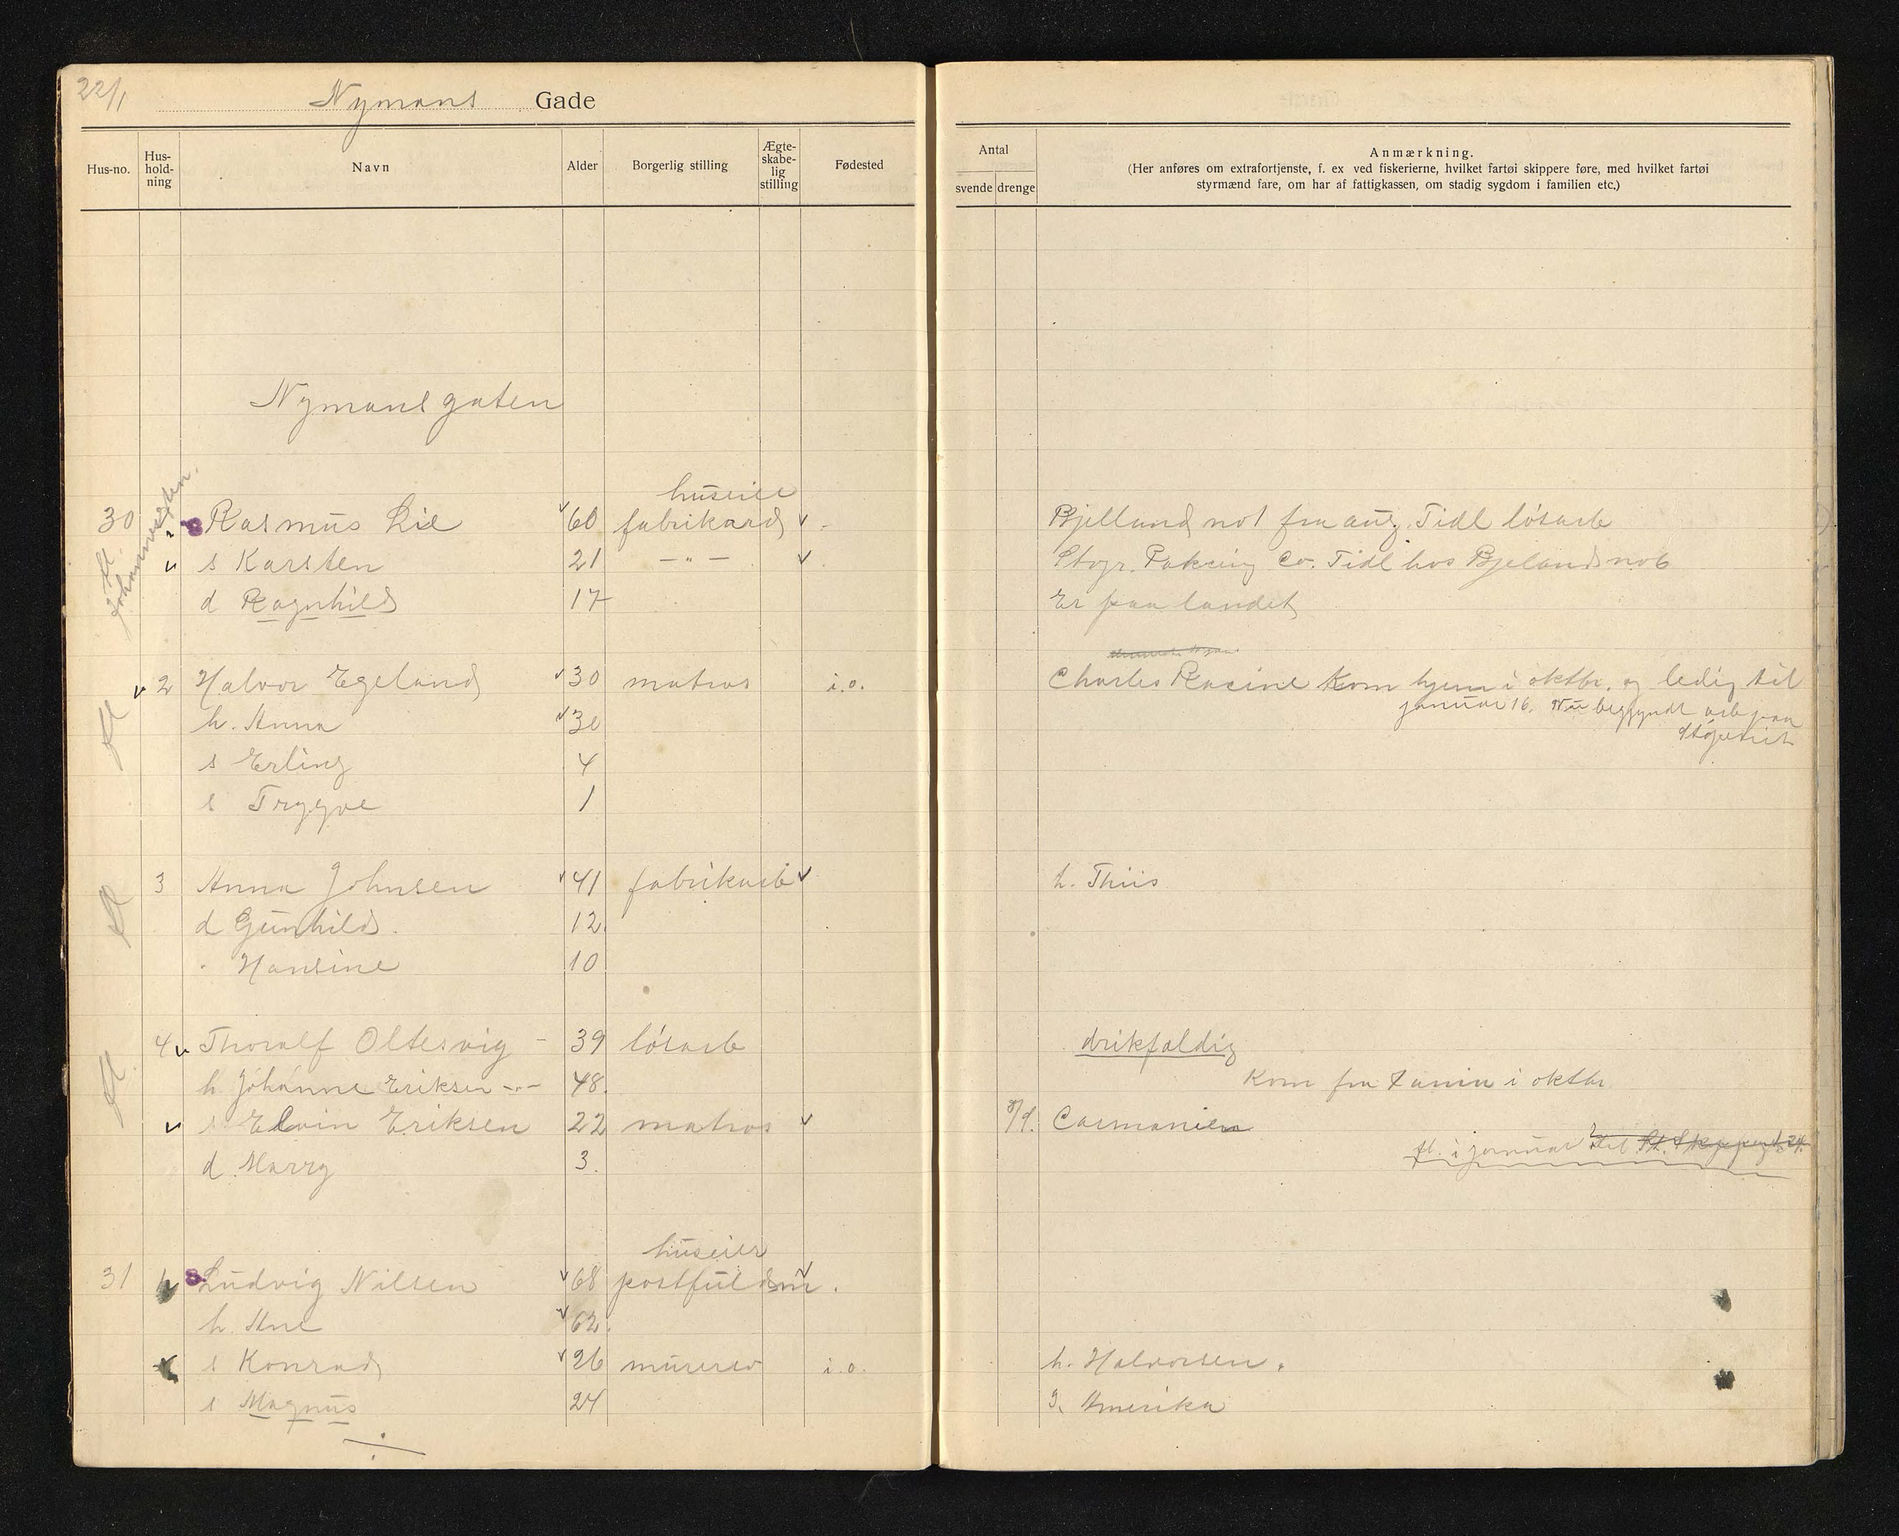 22/1
Nymans Gade
Hus-no. Hus-hold-ning Navn Alder Borgerlig stilling Ægte-skabe-lig stilling Fødested
Antal svende drenge Anmærkning.
(Her anføres om extrafortjenste, f. ex ved fiskerierne, hvilket fartøi skippere føre, med hvilket fartøi
styrmænd fare, om har af fattigkassen, om stadig sygdom i familien etc.)
Nymansgaten
huseier
30 Rasmus Lie 60 fabrikarb Bjelland not fra aug. Tidl løsarb
s Karsten 21 — " — Stvgr. Pakcing Co. Tidl hos Bjeland
d Ragnhild 17 Er paa landet
2 Halvor Egeland 30 matros i.o. Charles Racine Kom hjem i oktbr. og ledig til
januar 16. Nu begyndt arb paa
h. Anna 30 Støperiet
s Erling 4
s Trygve 1
3 Anna Johnsen 41 fabrikarb h. Thiis
d Gunhild. 12
" Hansine 10
4 Thoralf Oltesvig - 39 løsarb drikfældig
h Johanne Eriksen -"- 48. Kom fra i oktbr
s Elvin Eriksen 22 matros Carmanien
fl. i januar til St. Skippergt. 24.
d Marry 3.
huseier
31 Ludvig Nilsen 68 postfuldm.
h. Ane 62.
s Konrad 26 murersv i.o. h. Halvorsen.
s Magnus 24 I. Amerika